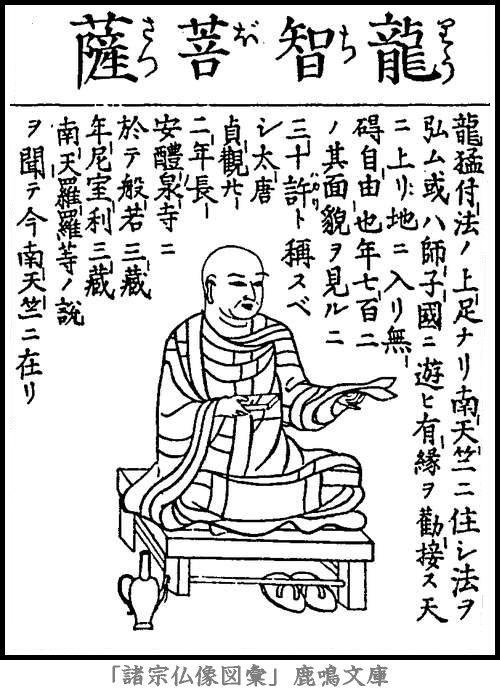 龍智菩薩
りう ち ぼ さつ
龍猛付法ノ上足ナリ南天竺ニ住シ法ヲ
弘ム或ハ師子國ニ遊ヒ有縁ヲ勸接ス天
ニ上リ地ニ入リ無
碍自由也年七百ニ
ノ其面貌ヲ見ルニ
三十許ト稱スベ
バカリ
シ太唐
貞觀廾
二年長
安醴泉寺ニ
於テ般若三藏
年尼室利三藏
南天羅羅等ノ説
ヲ聞テ今南天竺ニ在リ
「諸宗仏像図彙」鹿鳴文庫